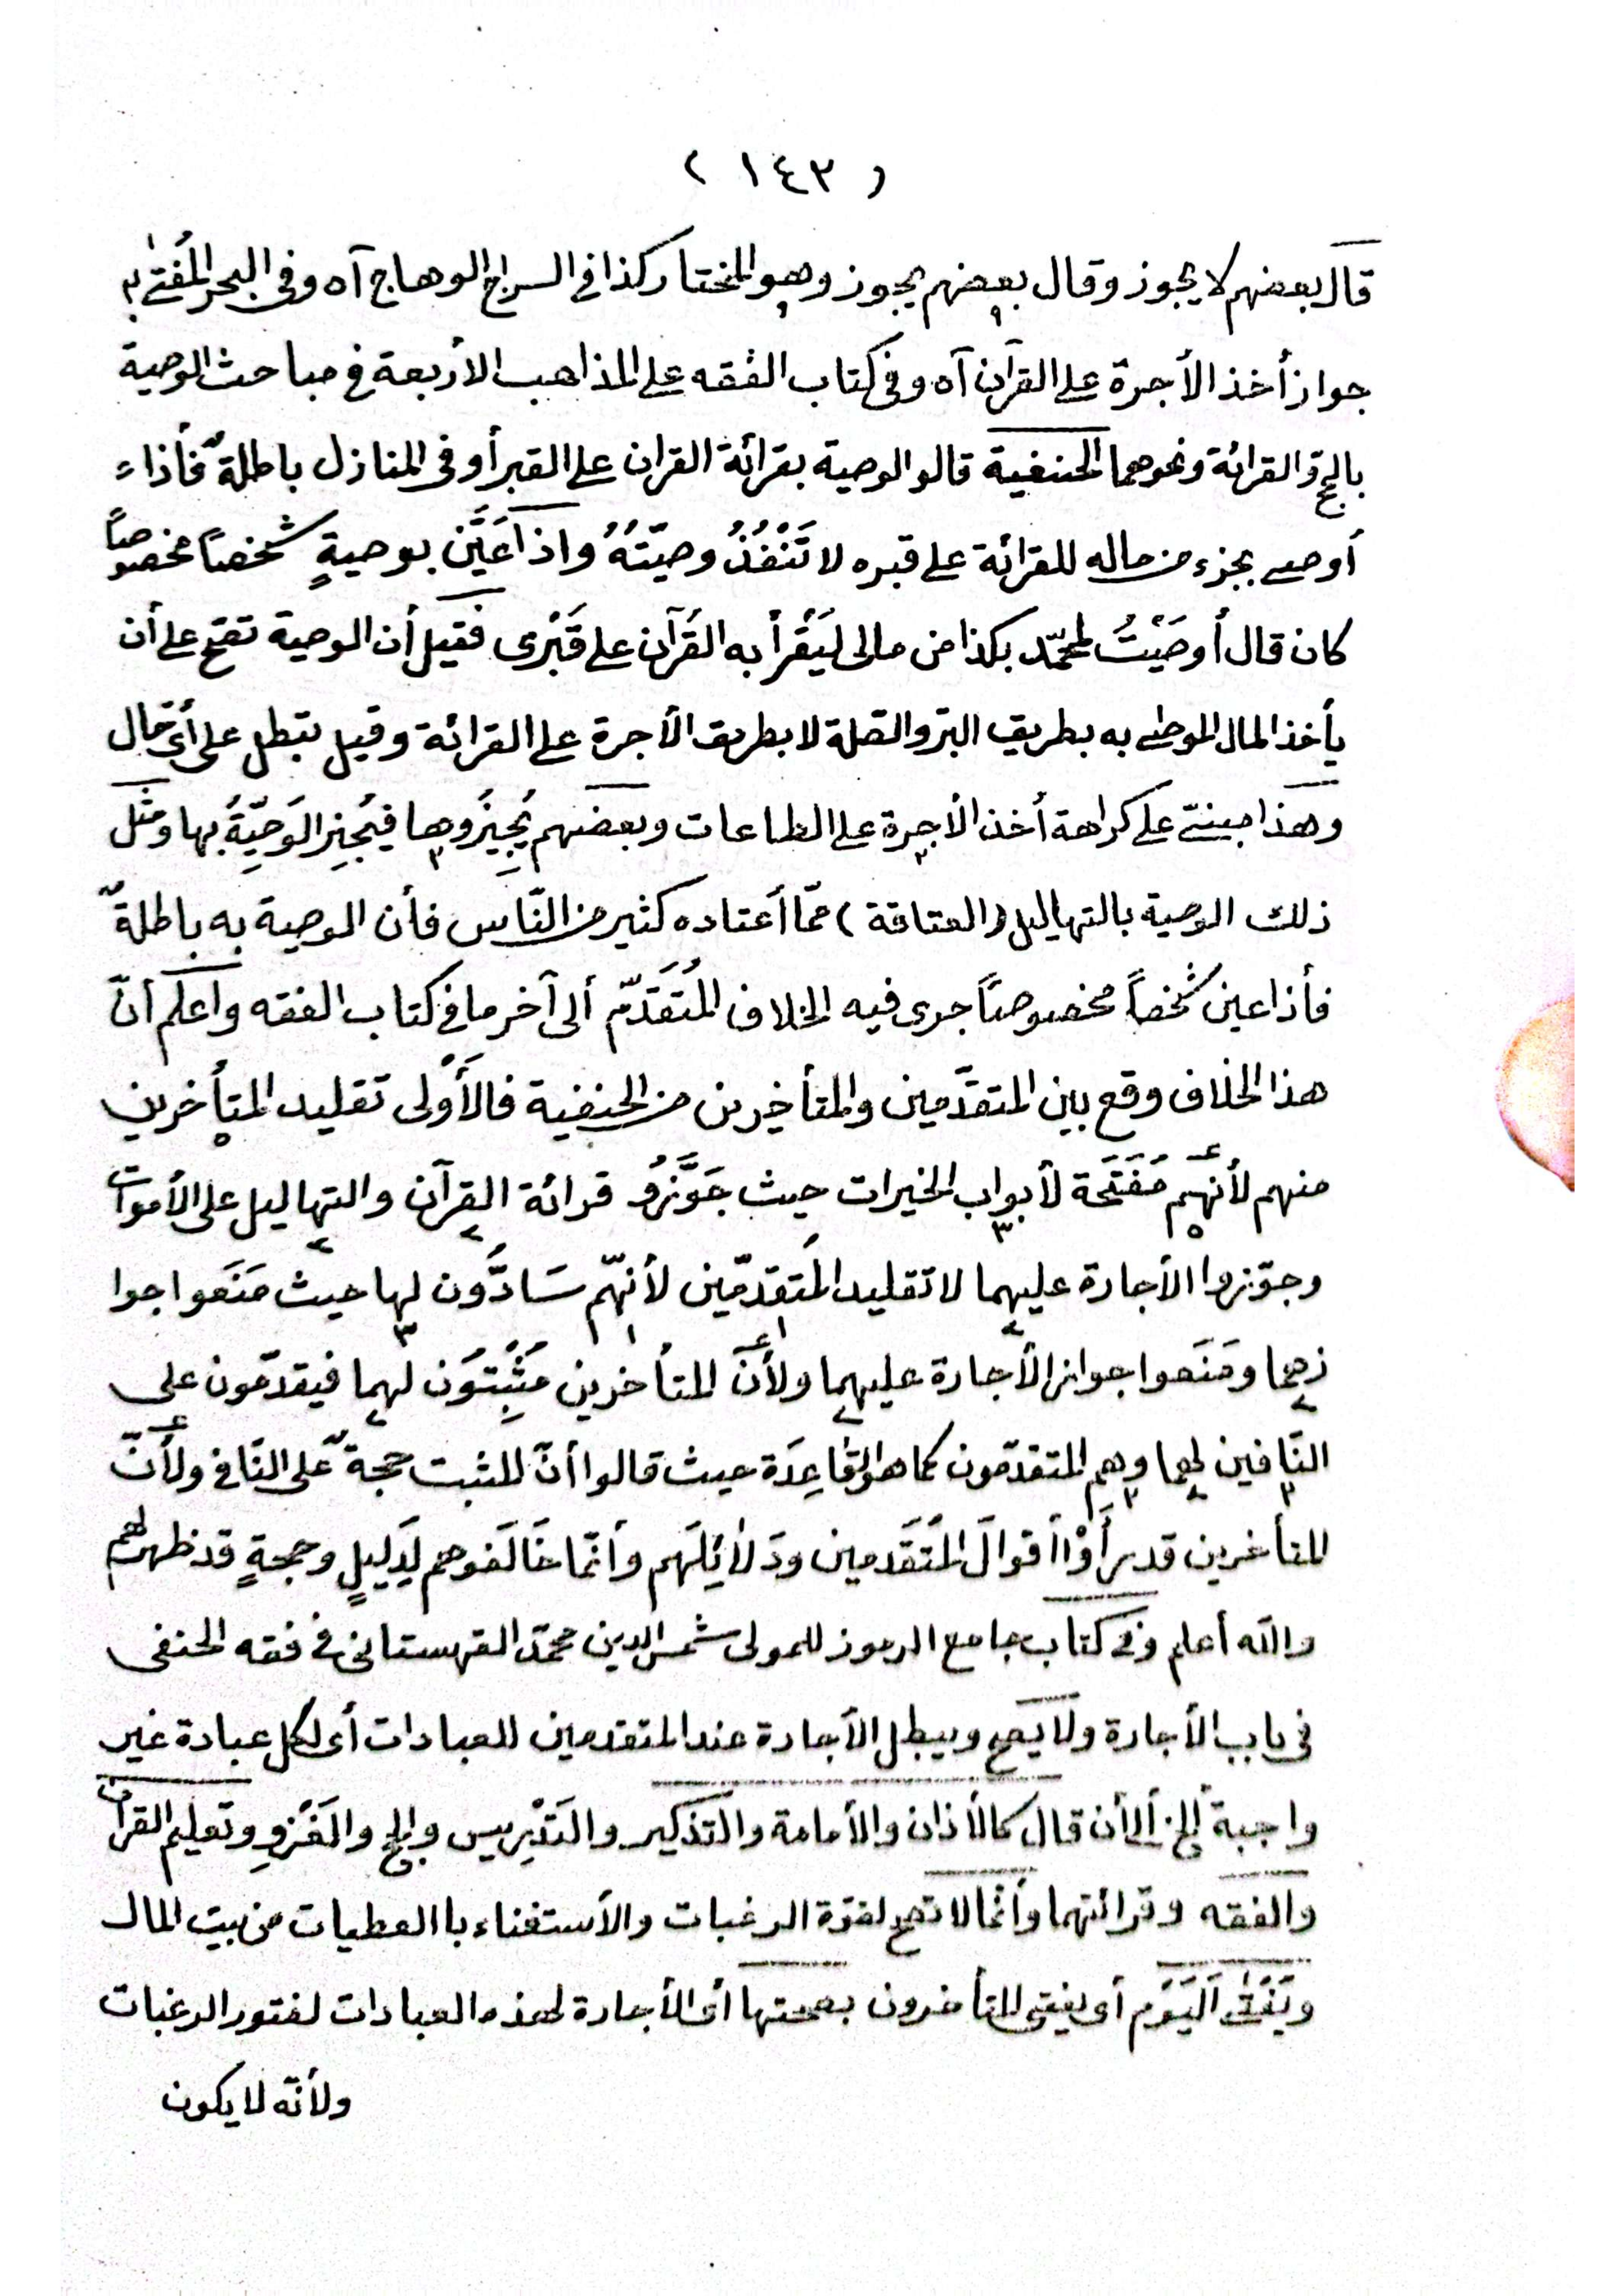 ( ١٤٣ )
قال بعضهم لا يجوز وقال بعضهم يجوز وهو المختار كذا في السراج الوهاج آه وفى البحر المُفتىٰ به
جواز أخذ الأجرة على القرآن آه وفى كتاب الفقه على المذاهب الأربعة فى مباحث الوصية
بالحج والقرائة ونحوهما الحنفية قالو الوصية بقرائة القران على القبر أو فى المنازل باطلةٌ فأذا
أوصى بجزء من ماله للقرائة على قبره لا تَنْفُذُ وصيّتُهُ واذا عَيَّن بوصيةٍ شخصاً مخصوصاً
كان قال أوصَيْتُ لمحمّد بكذا من مالى ليَقْرأ به القُرآن على قَبْرى فقيل أن الوصية تقع على أن
يأخذ المال الموصى به بطريق البرّ والصّلة لا بطريق الأجرة على القرائة وقيل تبطل على أىّ حال
وهذا مبنىّ على كراهة أخذ الأجرة على الطاعات وبعضهم يُجِيزُوها فيُجِيز الوَصِيّةُ بها ومثل
ذلك الوصية بالتهاليل (العتاقة) ممّا أعتاده كثير من النّاس فأن الوصية به باطلةٌ
فأذا عين شخصاً مخصوصاً جرى فيه الخلاف المُتَقَدّم ألى آخر ما فى كتاب الفقه وأعلم أنّ
هذا الخلاف وقع بين المتقدّمين والمتأخيرين من الحنفية فالأَوْلى تقليد المتأخرين
منهم لأنهم مُفَتّحَة لأبواب الخيرات حيث جَوَّزوُ قرائة القرآن والتهاليل على الأموات
وجوّزوا الأجارة عليهما لا تقليد المُتقدّمين لأنهّم سَادُّون لها حيث مَنَعوا جوا
زهما ومَنَعوا جواز الأجارة عليهما ولأنّ المتأخرين مَثْبِتُون لهما فيقدّمون على
النّافين لهما وهم المتقدّمون كما هو القاعِدَة حيث قالوا أنّ المثبت حجةٌ على النّافى ولأنّ
المتأخرين قد رأَوْا أقوالَ المُتَقَدمين ودَلأئِلَهم وأنّما خَالَفوهم لِدَليلٍ وحجةٍ قد ظهرت لهم
والله أعلم وفى كتاب جامع الرموز للمولى شمس الدين محمّد القهستانى فى فقه الحنفى
فى باب الأجارة ولا يَصح ويبطل الأجارة عند المتقدمين للعبادات أى لكل عبادة غير
واجبة إلخ ألى أن قال كالأذان والأمامة والتذكير والتَدْرِيس والحج والغَزْوِ وتعليم القرآن
والفقه وقرائتهما وأنّما لا تصح لقوّة الرغبات والأستغناء باالعطيات من بيت المال
ويَفْتَىٰ اَليَوْم أى يفتى المتأخرون بصحتها أى الأجارة لهذه العبادات لفتور الرغبات
ولأنّه لا يكون